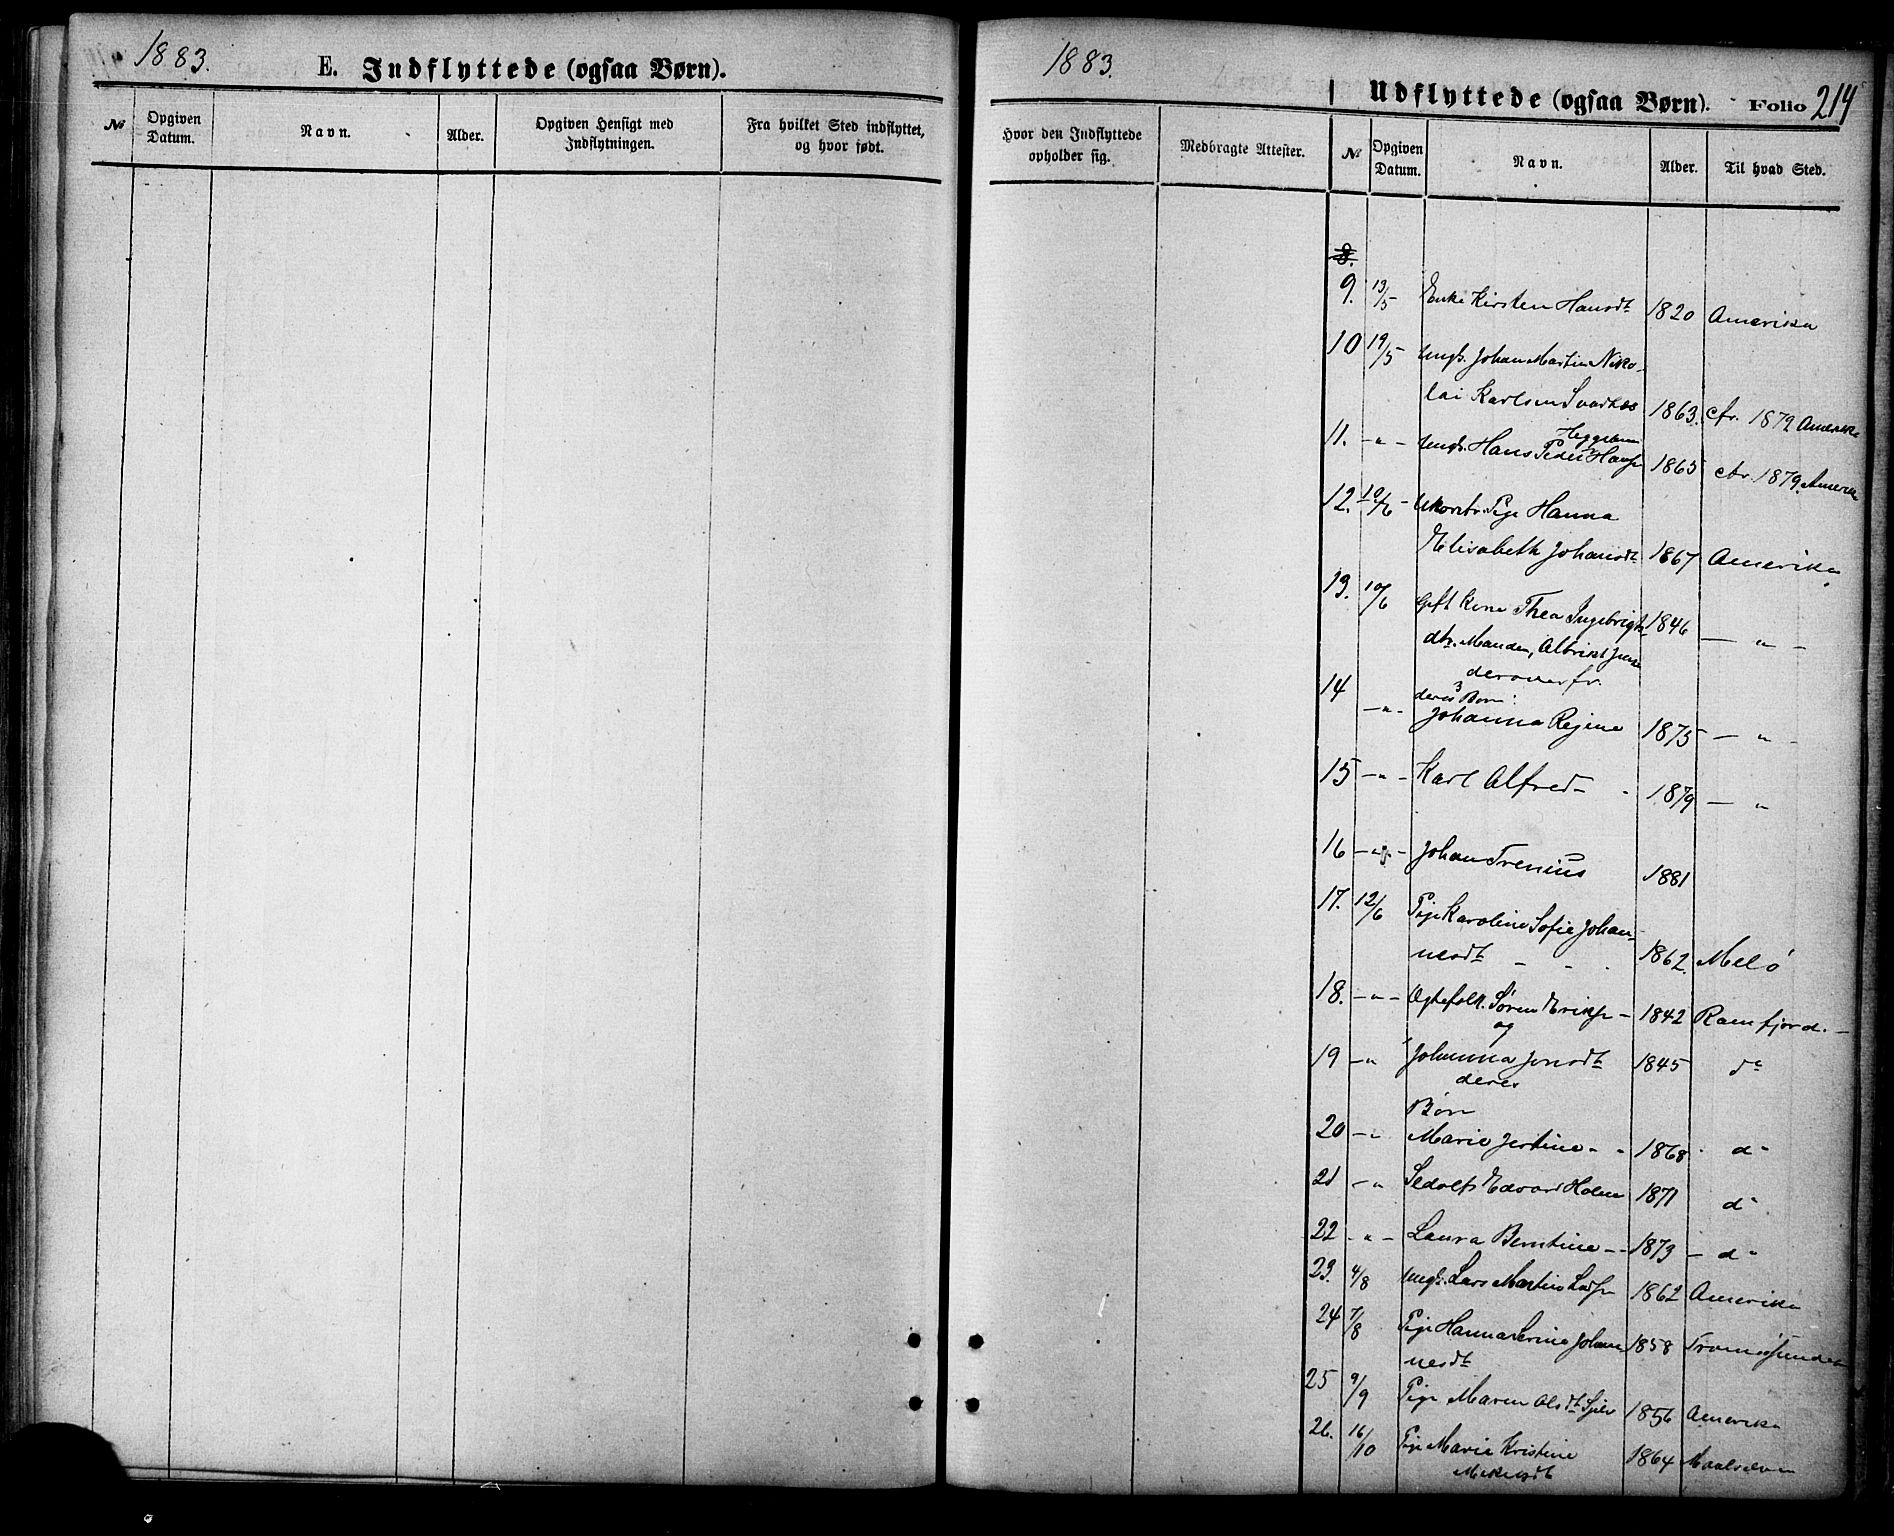 1883.
E. Indflyttede (ogsaa Børn).
№
Opgiven Datum.
Navn.
Alder.
Opgiven Hensigt med Indflytningen.
Fra hvilket Sted indflyttet, og hvor født.
1883.
Udflyttede (ogsaa Børn). Folio 214
Hvor den Indflyttede opholder sig.
Medbragte Attester.
№
Opgiven Datum.
Navn.
Alder.
Til hvad Sted.
8.
9. 13/5 Enke Kirsten Hansdt 1820 Amerika
10 19/5 Ungk. Johan Martin Niko-
lai Karlsen 1863. 1879 Amerika
11. -"- Ungk. Hans Peder Hans 1865 1879. Amerika
12. 10/6 - Ukonfr. Pige Hanna
Elisabeth Johansdt 1867 Amerika
13. 10/6 Gift Kone Thea Ingebrigts- 1846 - " -
dtr. Manden, Albrikt
14 deres 3 Børn:
-"- Johanna Regine 1875 - " -
15 -"- Karl Alfred - 1879 - "
16 -"- Johan Trenius 1881
17. 12/6 Pige Karoline Sofie Johan-
nesdt - - . 1862. Melø
18. -"- Ægtefolk. Søren Eriks - 1842 Ramfjord. -
og
19 -" Johanna Jensdt 1845 do
deres
Børn
20 -" Marie Jertine - - 1868 . d"
21 -" Sedolf Edvard Holm 1871 d"
22 -"- Laura Berntine - - 1873 - d"
23. 4/8 Ungk. Lars Martin 1862 Amerika
24 7/8 Pige Hanna Serine Johan 1858 Tromsøsundet
nesdt
25 9/9 Pige Maren Olsdt 1856 Amerika
26. 16/10 Pige Marie Kristine 1864 Maalselven